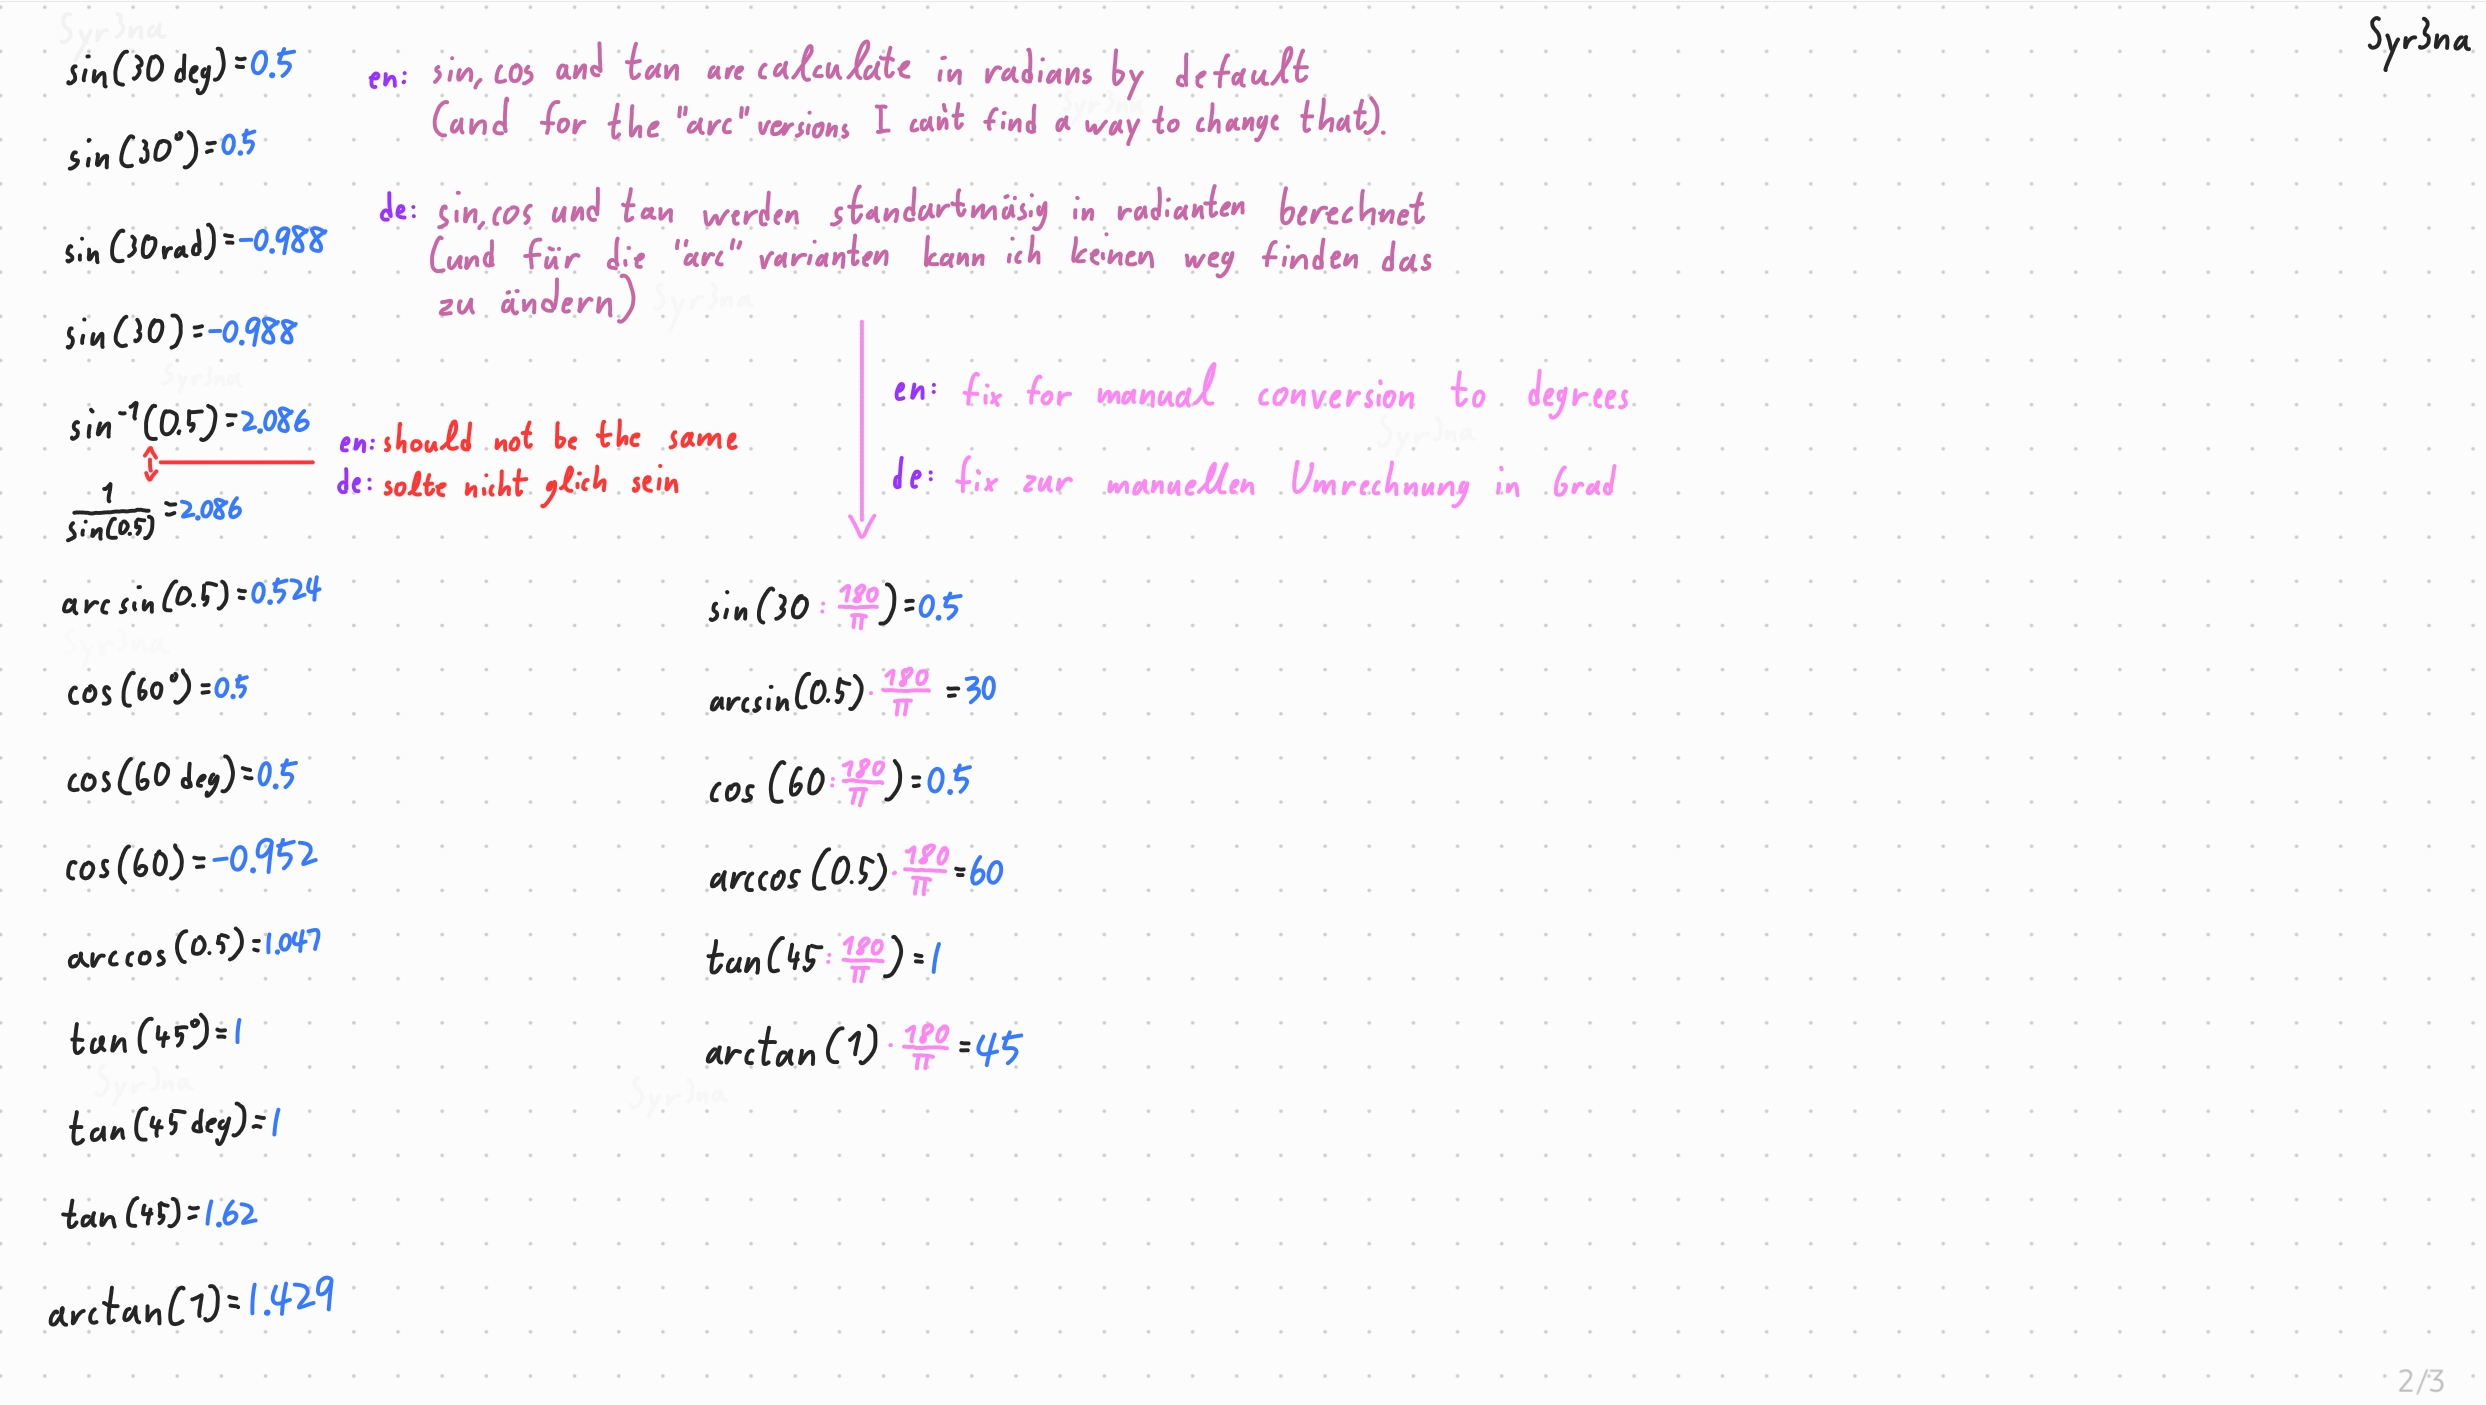 Syr3na
Syr3na
sin(30 deg)=0.5
en: sin, cos and tan are calculate in radians by default
Syr3na
(and for the "arc" versions I can't find a way to change that).
sin(30°)=0.5
de: sin, cos und tan werden standartmäsig in radianten berechnet
sin(30rad)=-0.988
(und für die "arc" varianten kann ich keinen weg finden das
zu ändern)
Syr3na
sin(30)=-0.988
Syr3na
en: fix for manual conversion to degrees
Syr3na
sin⁻¹(0.5)=2.086
en: should not be the same
de: solte nicht glich sein
de: fix zur manuellen Umrechnung in Grad
1/sin(0.5)=2.086
arcsin(0.5)=0.524
Syr3na
cos(60°)=0.5
cos(60 deg)=0.5
cos(60)=-0.952
arccos(0.5)=1.047
tan(45°)=1
Syr3na
tan(45 deg)=1
tan(45)=1.62
arctan(1)=1.429
sin(30:180/π)=0.5
arcsin(0.5)·180/π=30
cos(60:180/π)=0.5
arccos(0.5)·180/π=60
tan(45:180/π)=1
arctan(1)·180/π=45
Syr3na
2/3